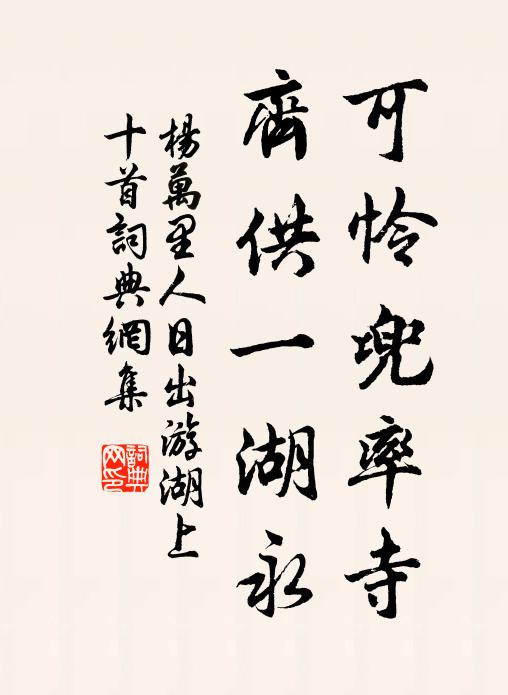 可怜兜率寺
齊供一湖永
楊萬里人日出游湖上
十首詞典網集
詞典网印